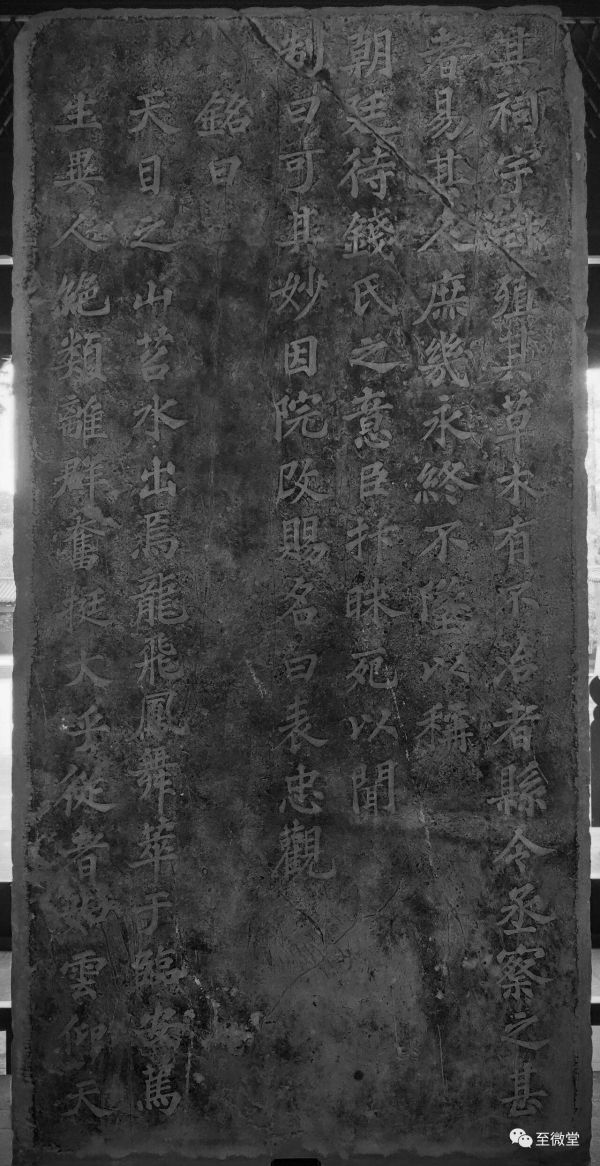 其祠宇封殖其草木有不治者縣令丞察之甚
者易其人庶幾永終不墜以稱
朝廷待錢氏之意臣抃昧死以聞
制曰可其妙因院改賜名曰表忠觀
銘曰
天目之山苕水出焉龍飛鳳舞萃于臨安篤
生異人絶類離群奮挺大呼從者如雲仰天
至微堂